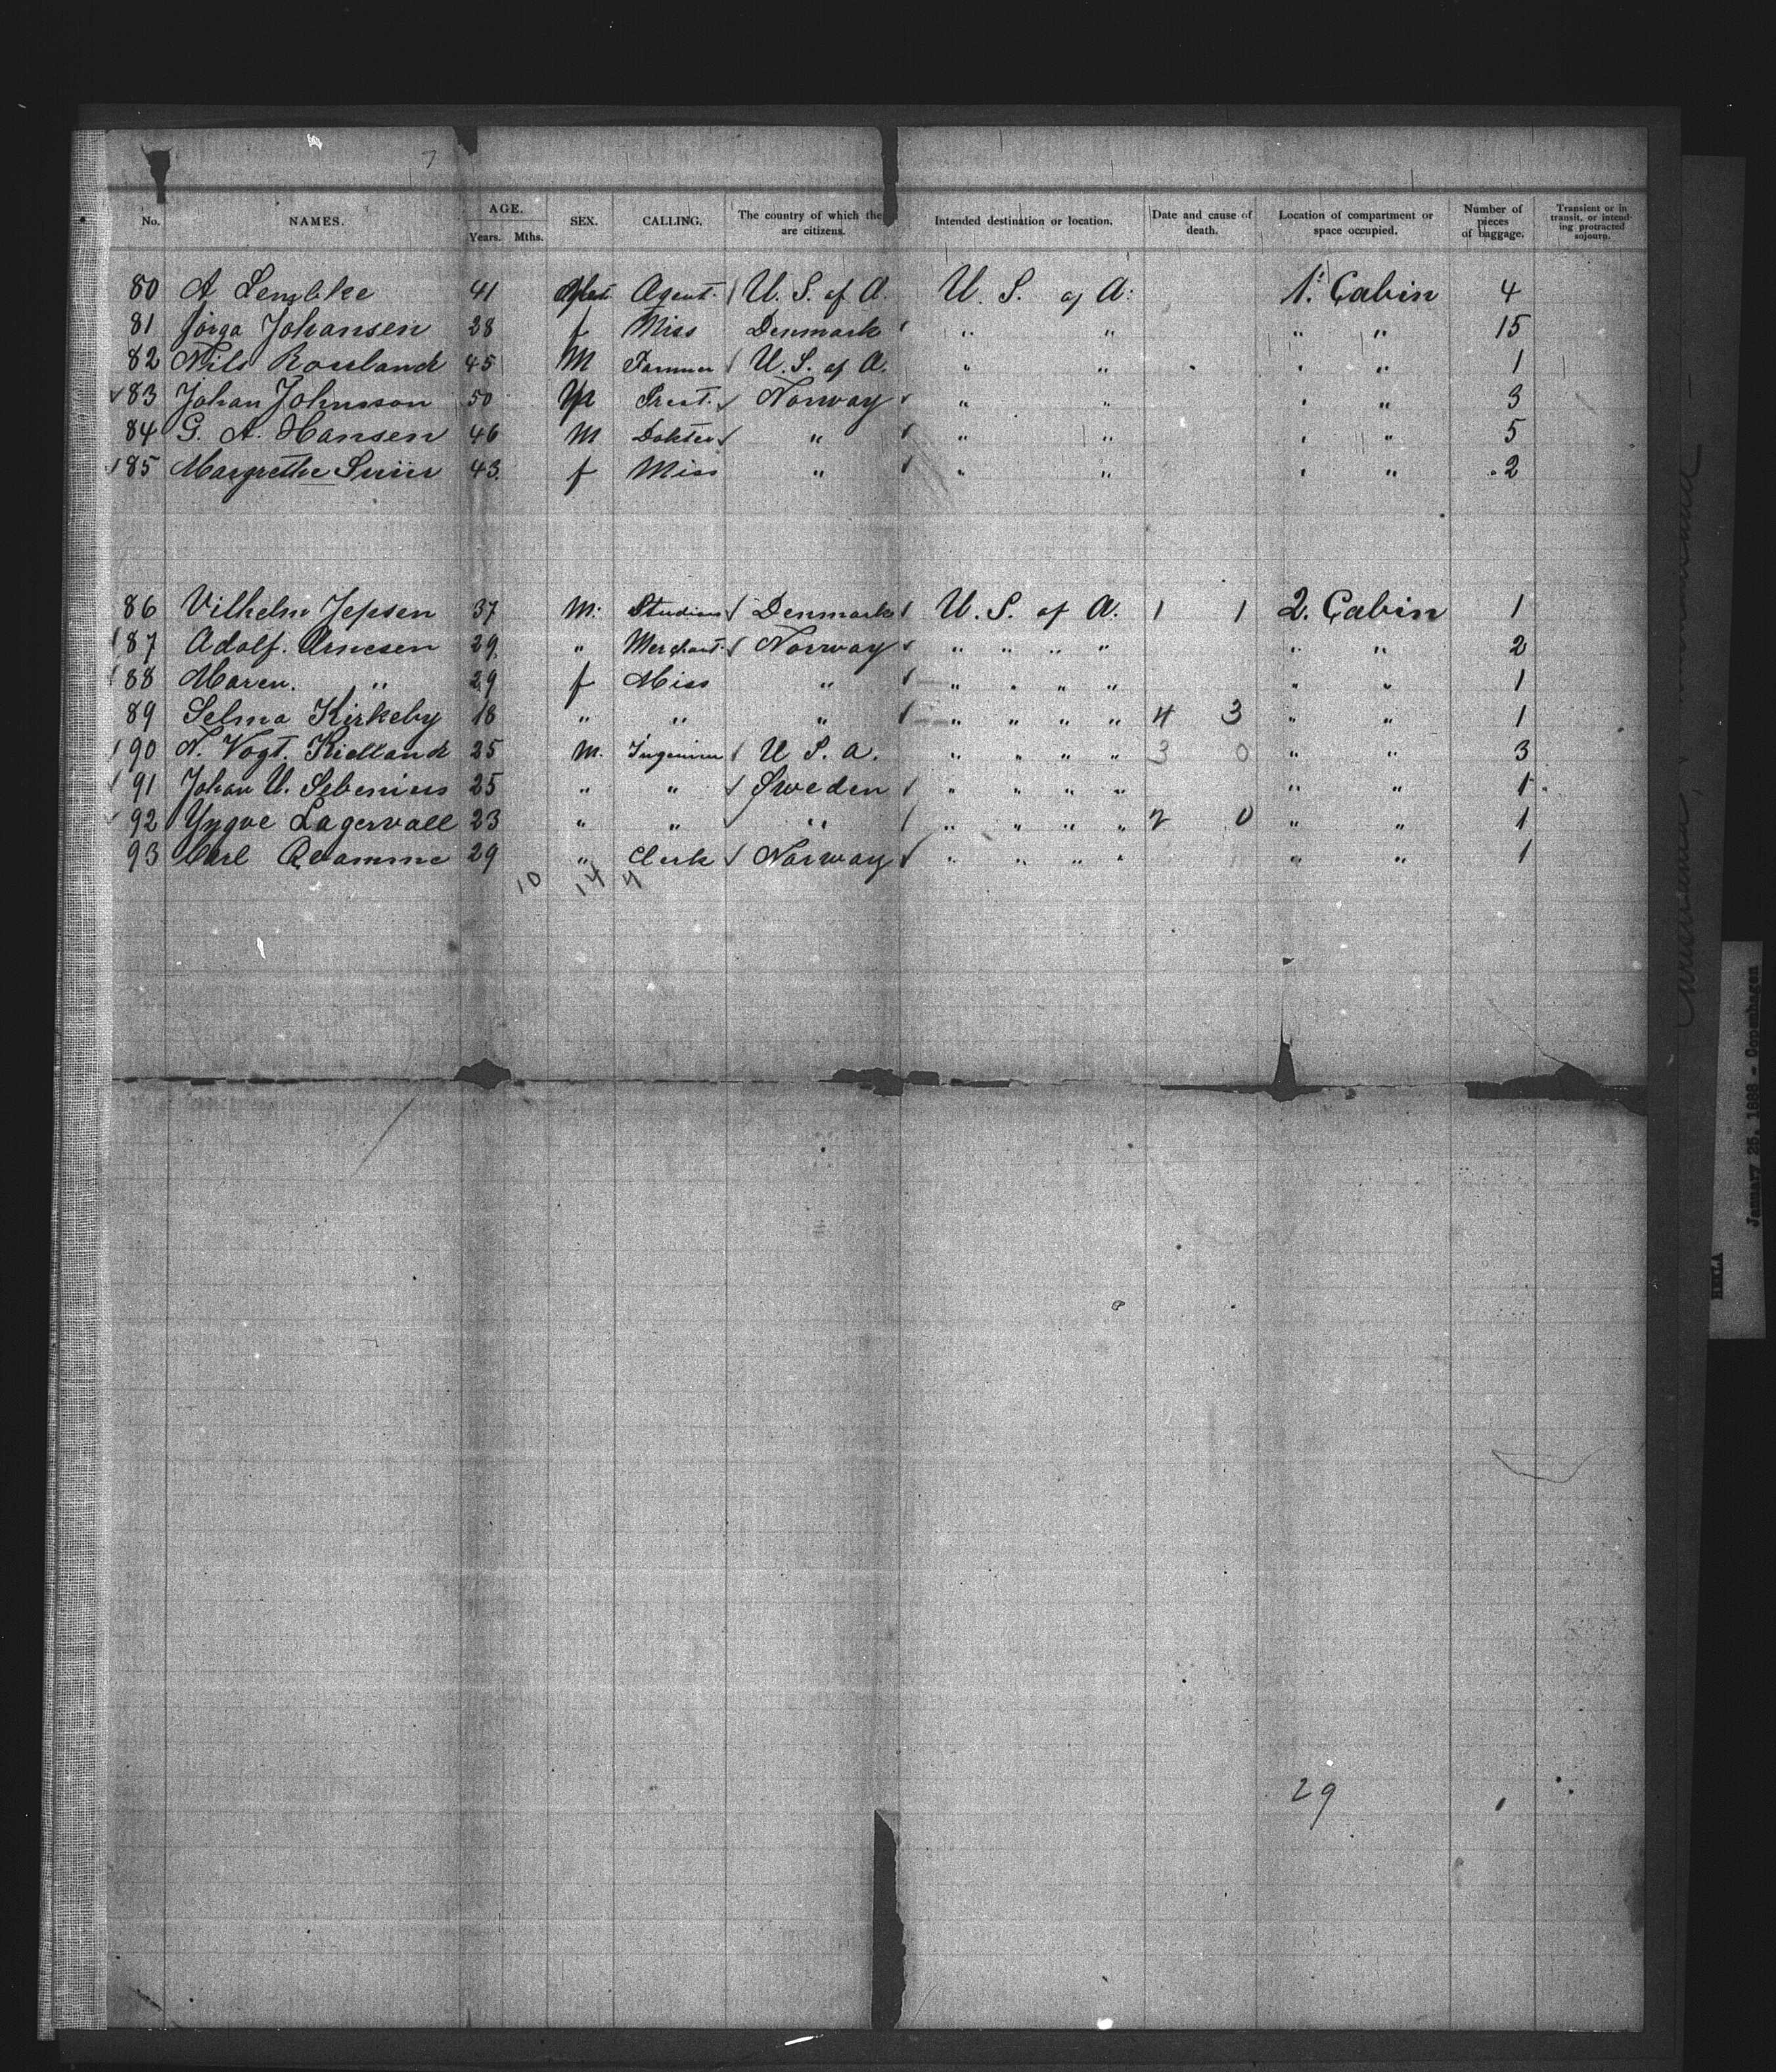 7
No. NAMES. AGE. Years. Mths. SEX. CALLING. The country of which they are citizens. Intended destination or location. Date and cause of death. Location of compartment or space occupied. Number of pieces of baggage. Transient or in transit, or intending protracted sojourn.
80 A Lembke 41 Agent. U. S. of A. U. S. of A. 1. Cabin 4
81 Jörga Johansen 28 f Miss Denmark " " " " 15
82 Nils Rossland 45 M Farmer U. S. of A. " " " " 1
83 Johan Johnson 50 M Prest. Norway " " " " 3
84 G. A. Hansen 46 M Dokter " " " " " 5
85 Margrethe 43. f Miss " " " " " 2
86 Vilhelm Jepsen 37 M. Denmark U. S. of A. 1 1 2. Cabin 1
87 Adolf. Arnesen 29 " Merchant. Norway " " " " " " 2
88 Maren. " 29 f Miss " " " " " " " 1
89 Selma Kirkeby 18 " " " " " " " 4 3 " " 1
90 N. Vogt. Kielland 25 M. Ingeniur U S. A. " " " " 3 0 " " 3
91 Johan U. Sebenius 25 " " Sweden " " " " " " 1
92 Yngve Lagervall 23 " " " " " " " 2 0 " " 1
93 Carl Qvamme 29 " Clerk Norway " " " " " " 1
10 14 4
29
January 25, 1888 - Copenhagen
HEKLA